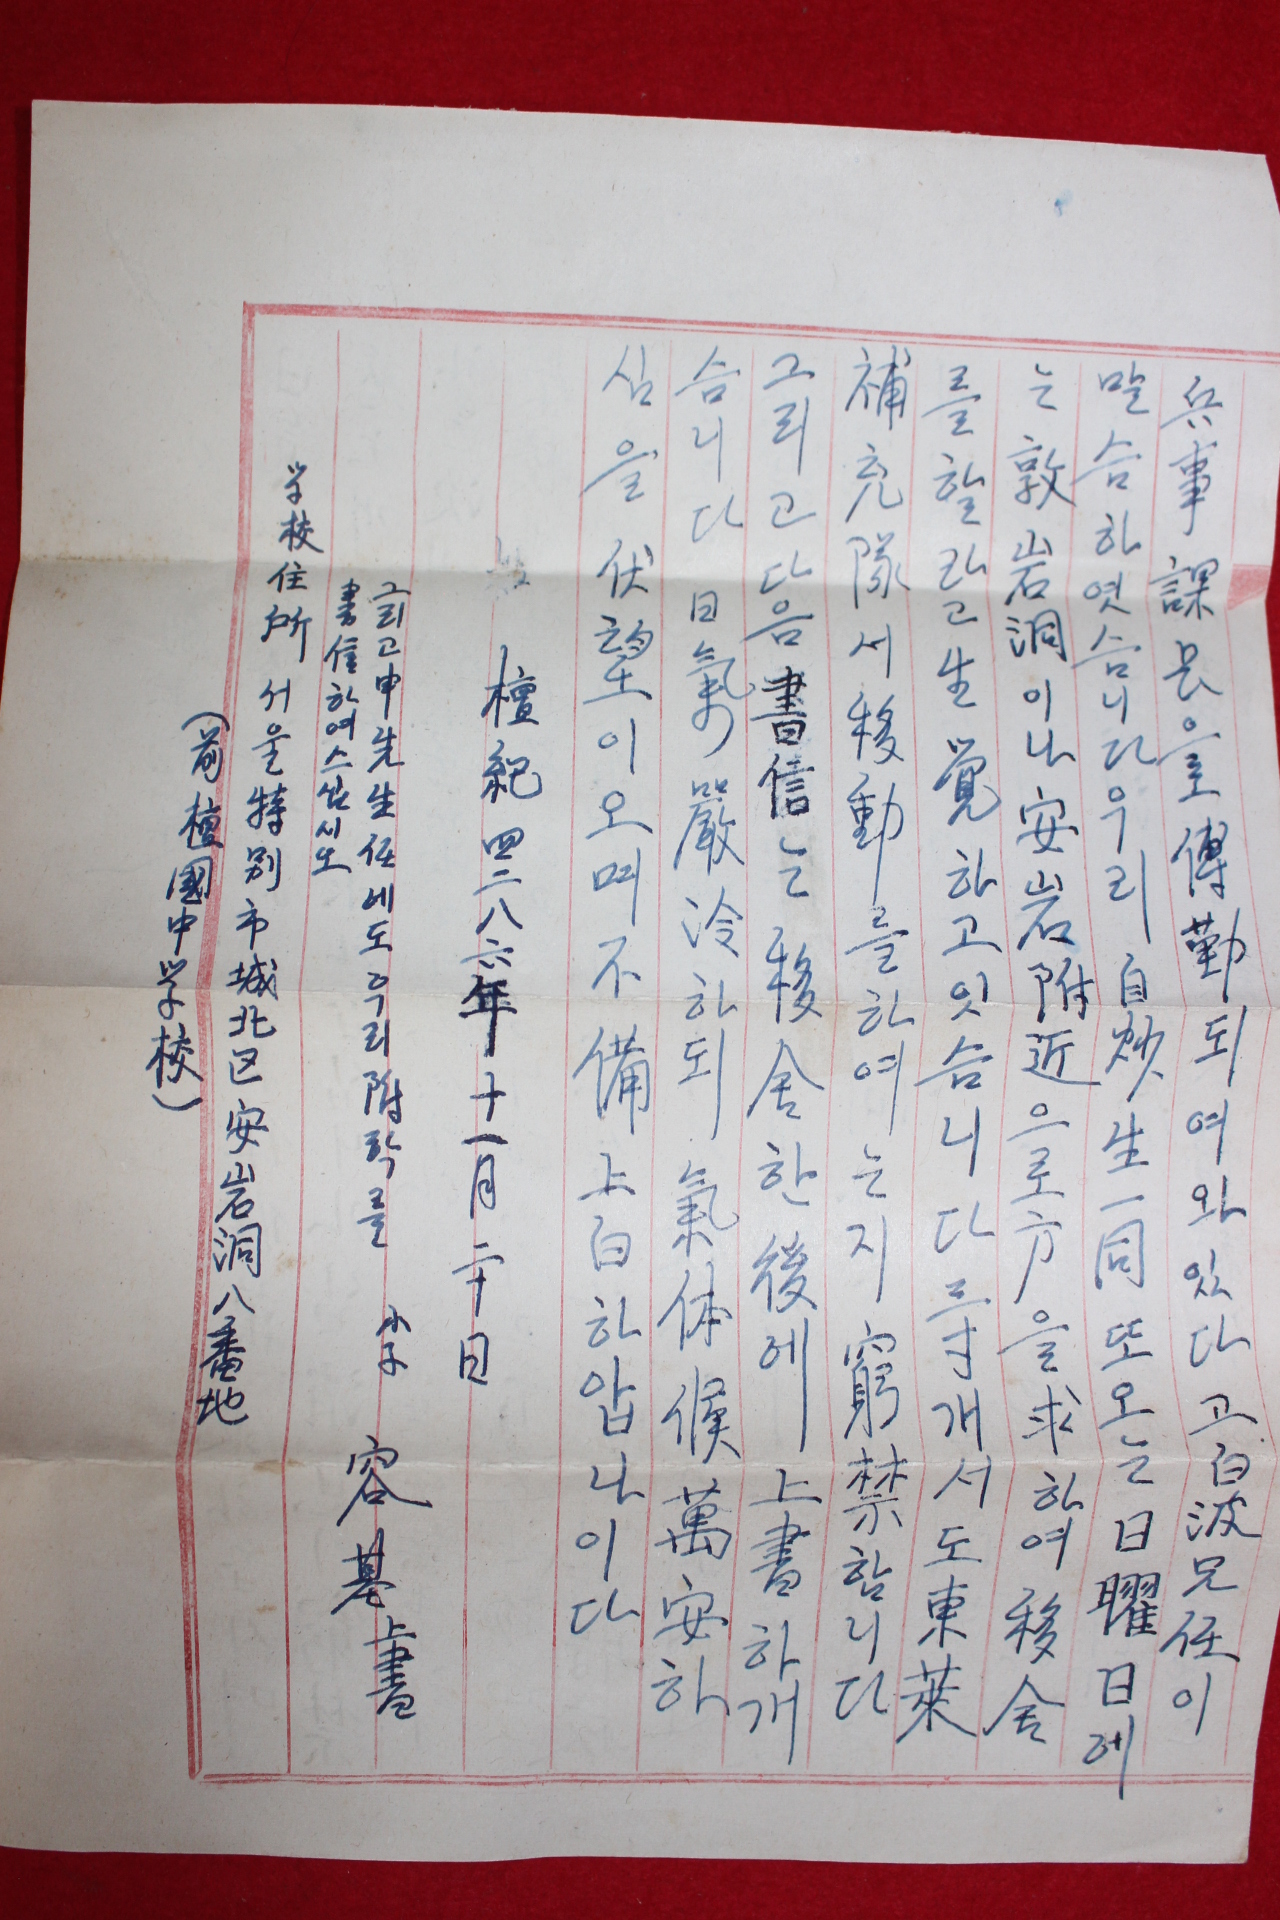 兵事課長을 傳勤되여와있다고 白波兄任이
말슴하엿슴니다 우리 自炒生一同 또 오는 日曜日에
는 敦岩洞이나 安岩附近으로 方을 求하여 移舍
를 할라고 生覺하고 잇슴니다 三寸개서도 東萊
補充隊서 移動를 하여는지 窮禁함니다
그리고 다음 書信는 移舍한 後에 上書하개
슴니다 日氣 嚴冷하되 氣体候 萬安하
심을 伏望이오며 不備上白하압나이다
檀紀 四二八六年 十一月 二十日
小子 容基 上書
그리고 申先生任에도 우리 附탁를
書信하여 스십시오
学校住所 서울特別市 城北区 安岩洞 八番地
(前 檀國中学校)